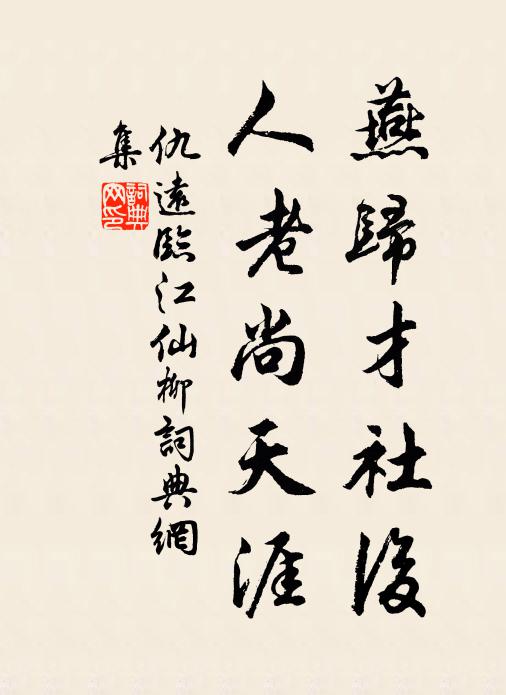 燕歸才社後
人老尚天涯
仇遠臨江仙柳詞典網
集
詞典网印